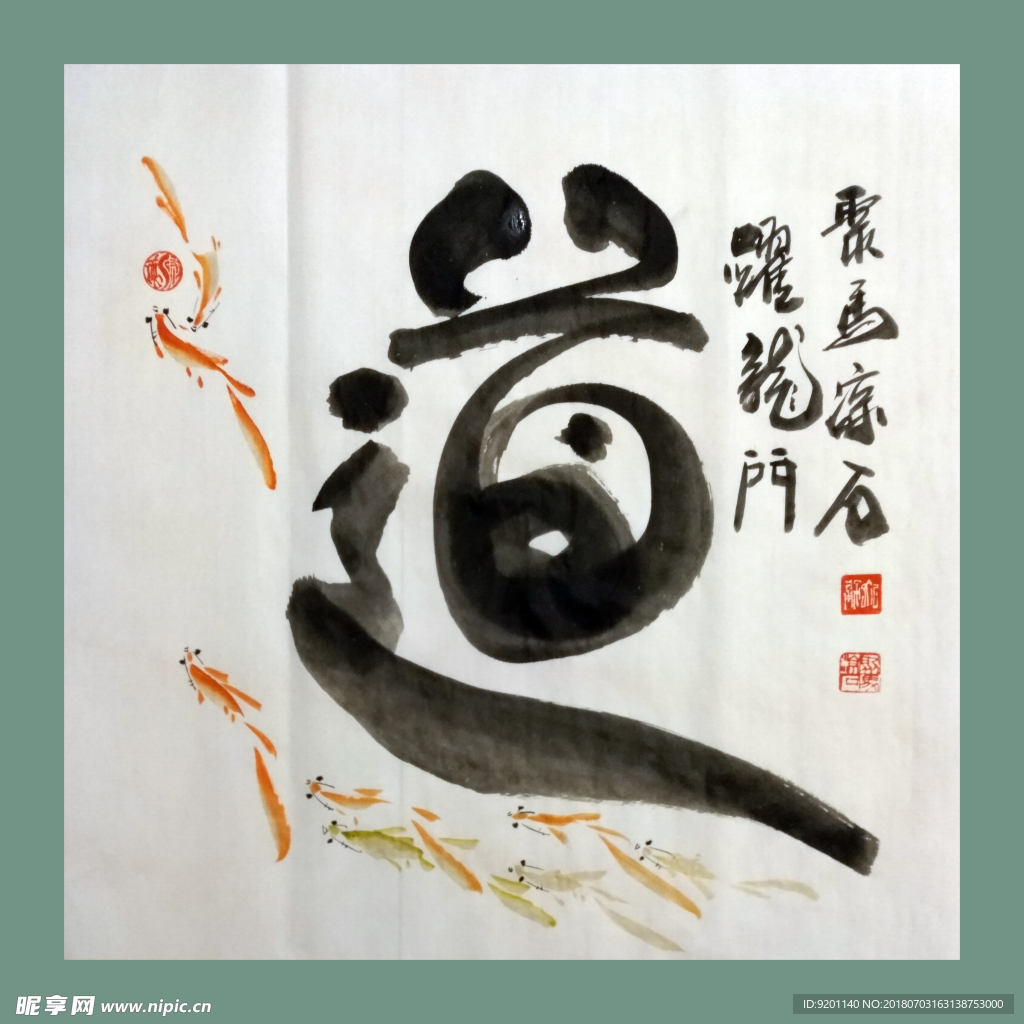 道
躍龍門
聚馬
石
昵享网 www.nipic.cn
ID:9201140 NO:20180703163138753000